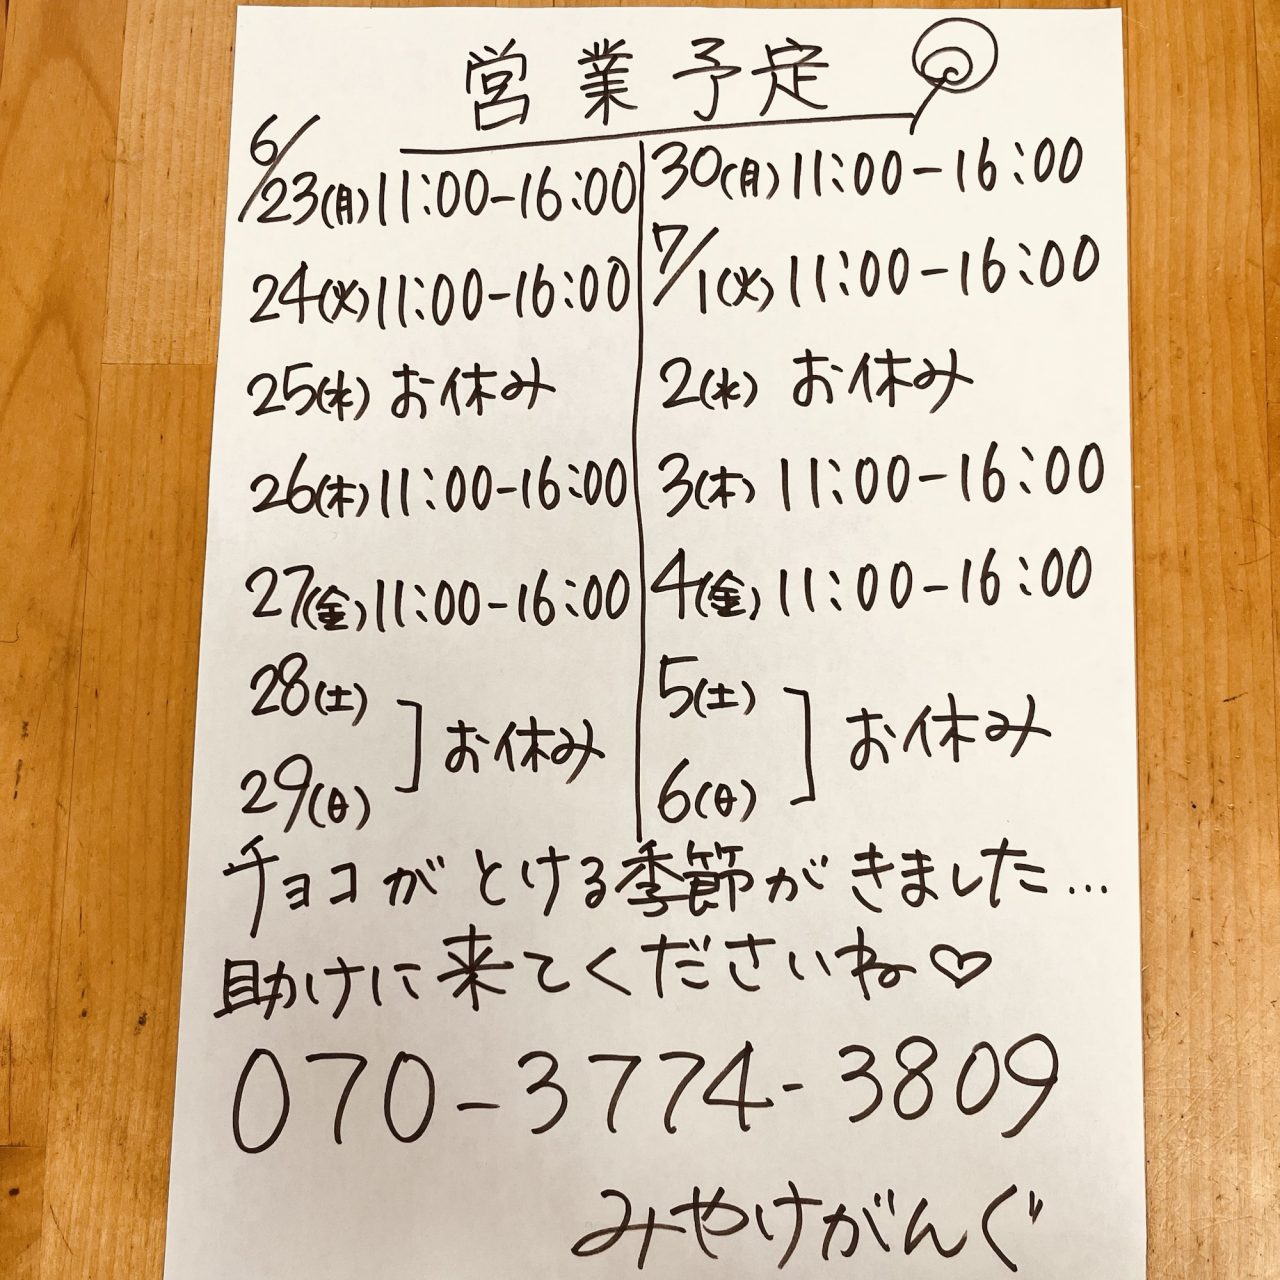 営業予定
6/23(月)11:00-16:00
24(火)11:00-16:00
25(水)お休み
26(木)11:00-16:00
27(金)11:00-16:00
28(土)
29(日)
お休み
30(月)11:00-16:00
7/1(火)11:00-16:00
2(水)お休み
3(木)11:00-16:00
4(金)11:00-16:00
5(土)
6(日)
お休み
チョコがとける季節がきました...
助けに来てくださいね♡
070-3774-3809
みやけがんぐ